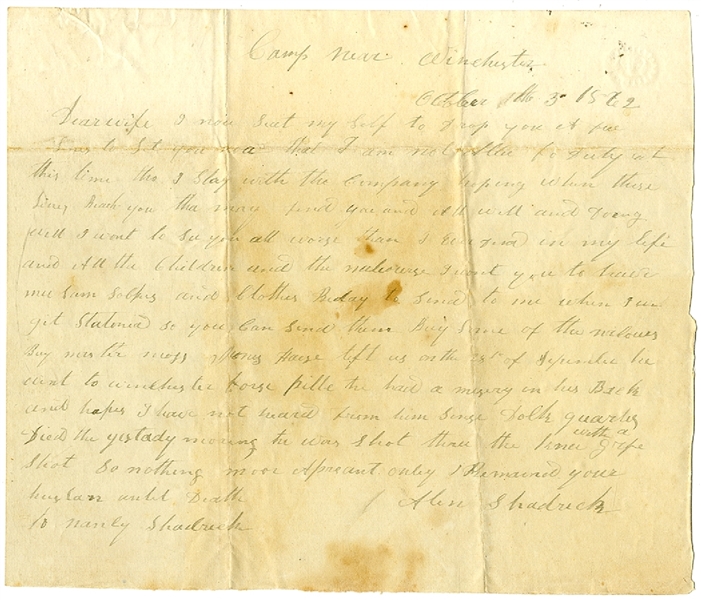 Camp near Winchester
October the 3 1862
Dear wife I now Seat my Self to Drop you A fue
lines to let you near that I am not Able for Duty at
this time tho I Stay with the Company hoping when these
lines Reach you tha may find you and All well and Doing
well I want to See you all worse than I Ever did in my life
and All the Children and the I want you to have
me Sum and Clothes Reday to Send to me when I
git Stationed So you Can Send them Buy Some of the
Buy moss House left us on the of he
went to Winchester he had a misery in his Back
and I have not heard from him Sinse quarles
Died the yestady morning he was Shot threw the with a grape
Shot So nothing more Apreant only I Remained your
husban untel Death
Alen Shadrick
to Nancy Shadrick